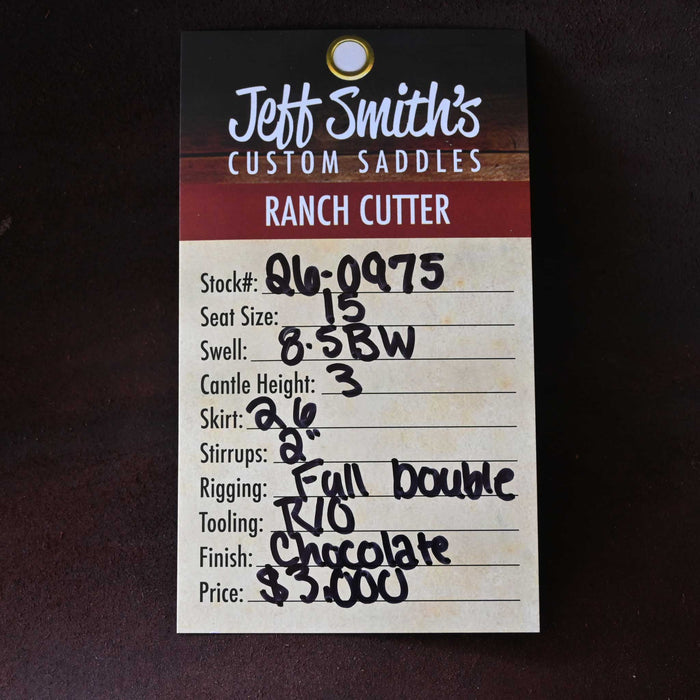 Jeff Smith's
CUSTOM SADDLES
RANCH CUTTER
Stock#: 26-0975
Seat Size: 15
Swell: 8.5BW
Cantle Height: 3
Skirt: 26
Stirrups: 2"
Rigging: Full Double
Tooling: R/O
Finish: Chocolate
Price: $3,000